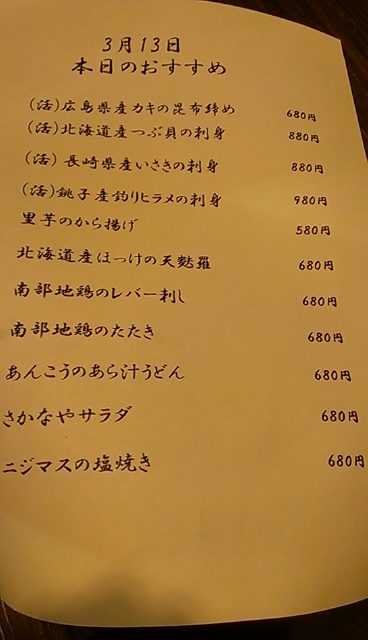 3月13日
本日のおすすめ
(活)広島県産カキの昆布締め 680円
(活)北海道産つぶ貝の刺身 880円
(活)長崎県産いさきの刺身 880円
(活)銚子産釣りヒラメの刺身 980円
里芋のから揚げ 580円
北海道産ほっけの天麩羅 680円
南部地鶏のレバー刺し 680円
南部地鶏のたたき 680円
あんこうのあら汁うどん 680円
さかなやサラダ 680円
ニジマスの塩焼き 680円